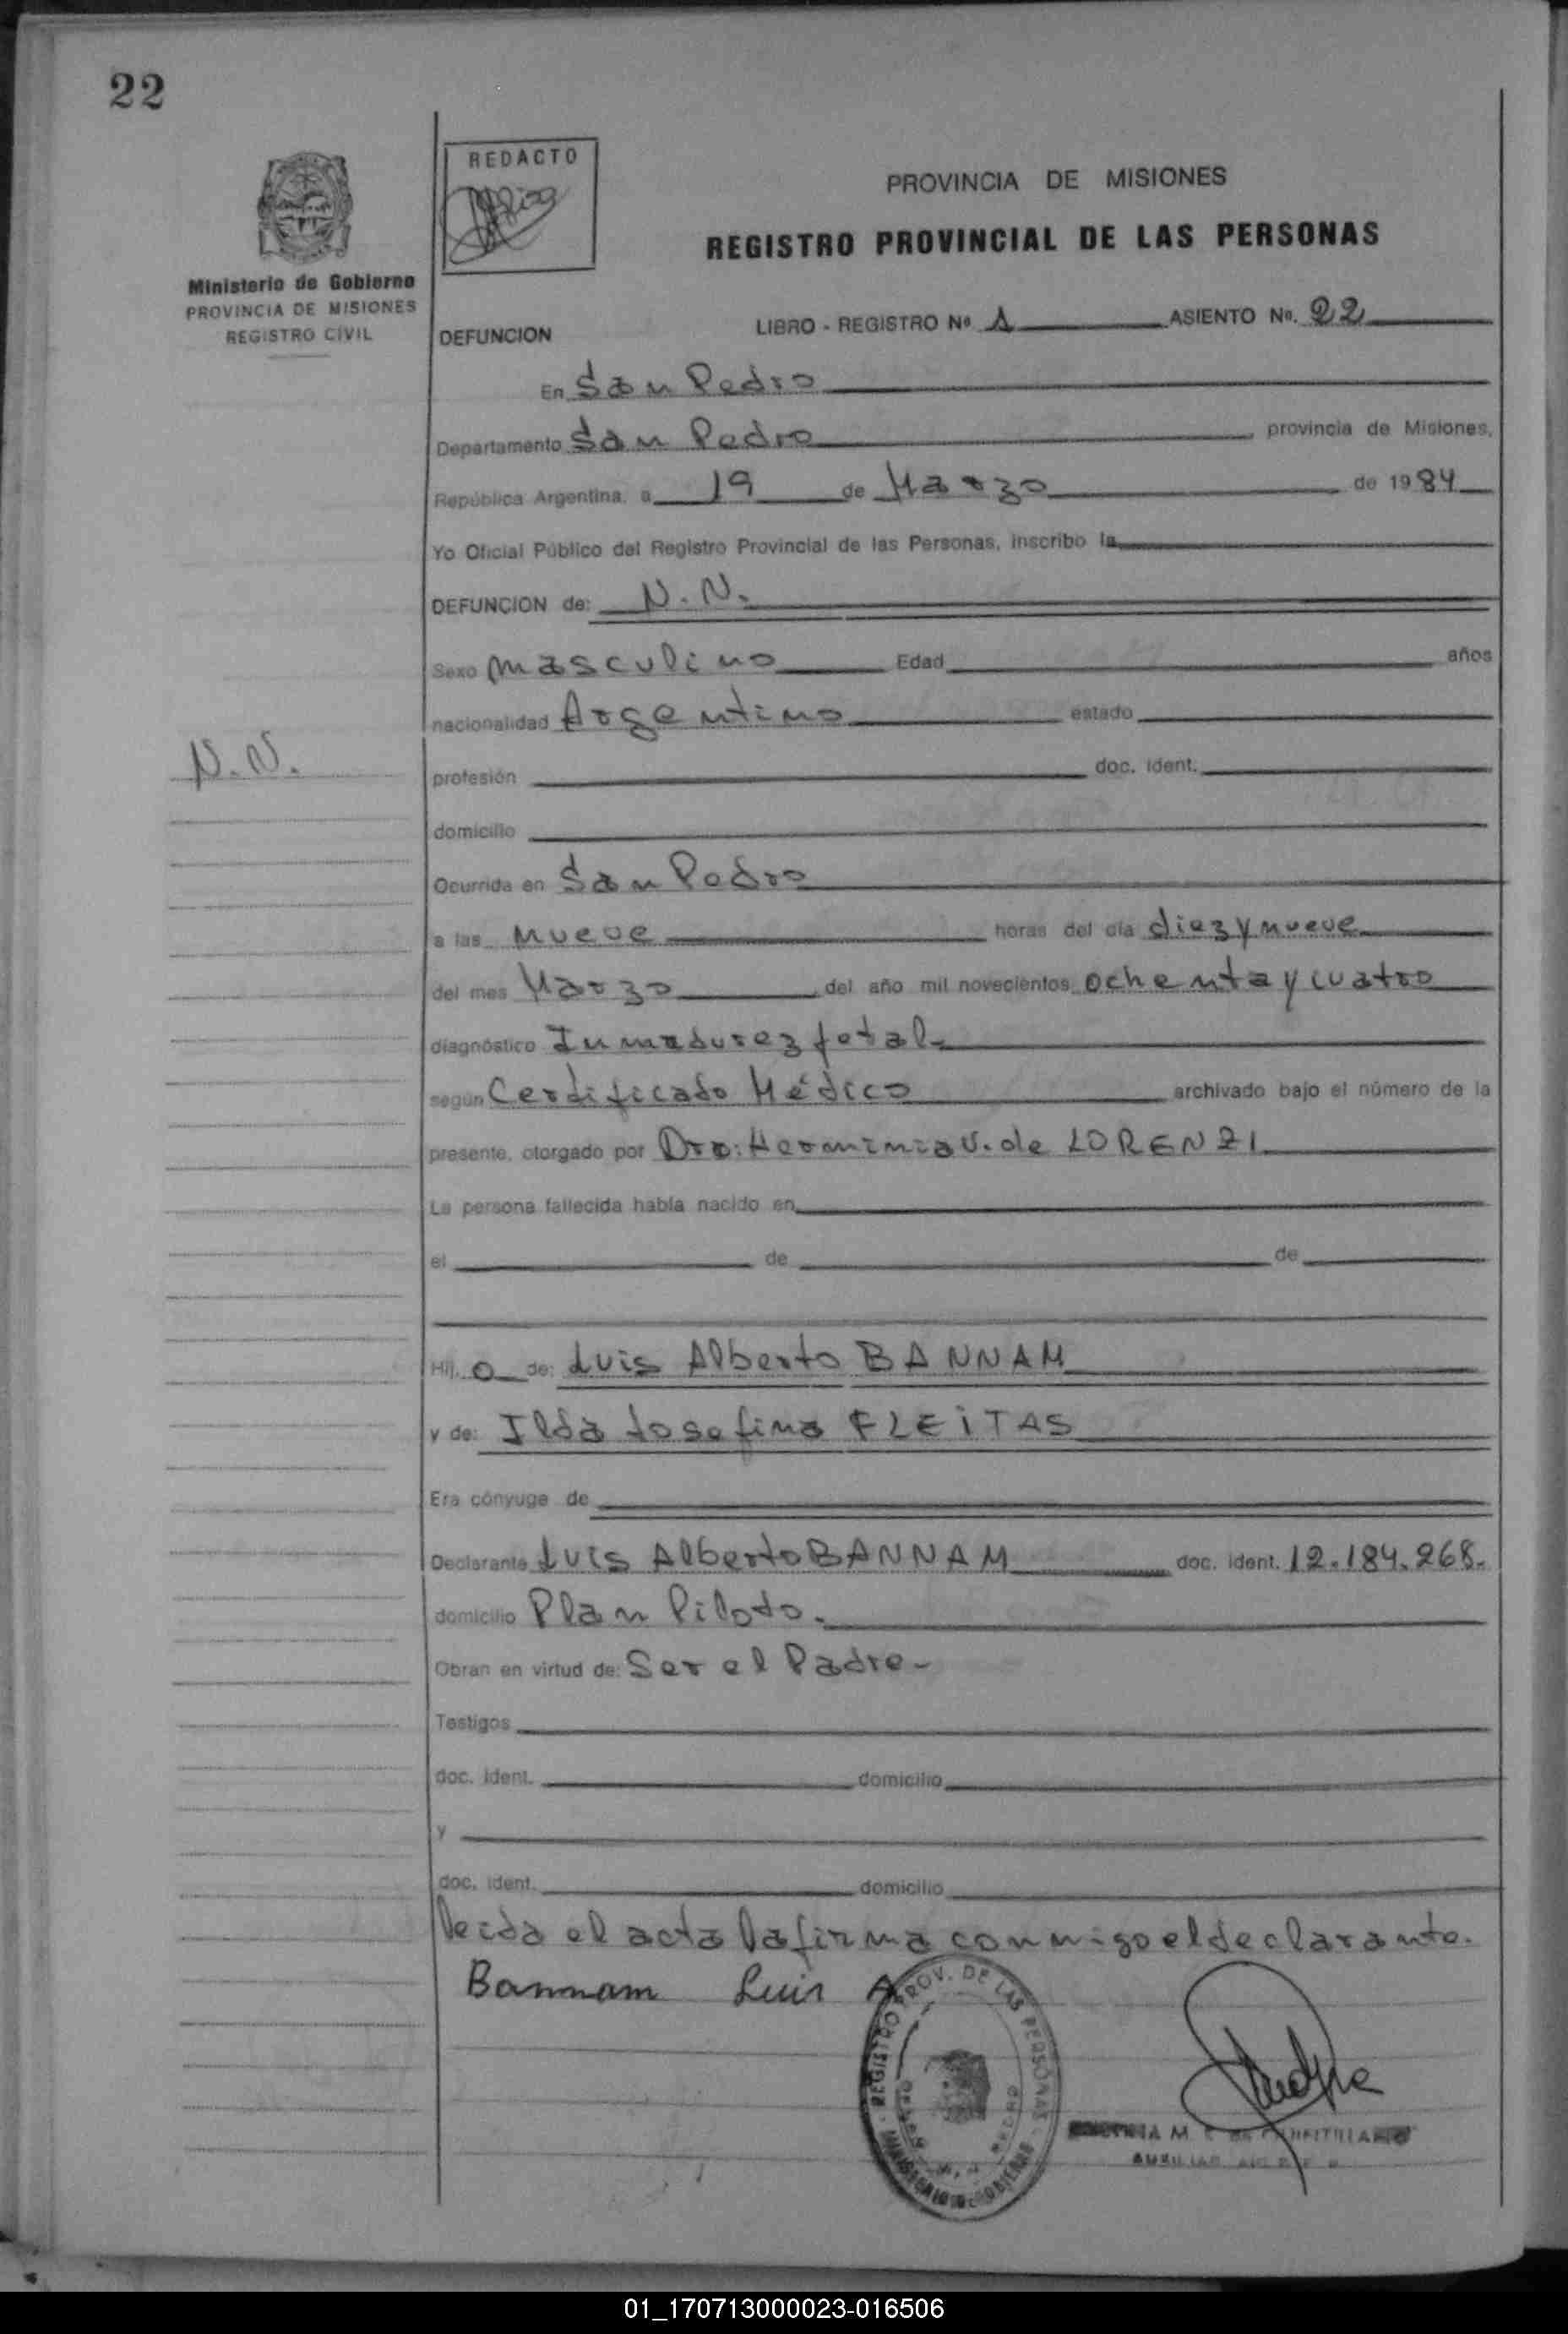 22
REDACTO
PROVINCIA DE MISIONES
REGISTRO PROVINCIAL DE LAS PERSONAS
Ministerio de Gobierno
PROVINCIA DE MISIONES
REGISTRO CIVIL
DEFUNCION LIBRO - REGISTRO Nº 1 ASIENTO No. 22
En San Pedro
Departamento San Pedro provincia de Misiones,
República Argentina, a 19 de Marzo de 1984
Yo Oficial Público del Registro Provincial de las Personas, inscribo la
DEFUNCION de: N. N.
Sexo masculino Edad años
nacionalidad Argentino estado
N. N.
profesión doc. ident.
domicilio
Ocurrida en San Pedro
a las nueve horas del día diez y nueve
del mes Marzo del año mil novecientos ochenta y cuatro
diagnóstico Inmadurez fetal.
según Cerdificado Médico archivado bajo el número de la
presente, otorgado por Dra: Herminia V. de LORENZI
La persona fallecida había nacido en
el de de
Hij o de: Luis Alberto BANNAM
y de: Ilda Josefina FLEITAS
Era cónyuge de
Declarante Luis Alberto BANNAM doc. ident. 12.184.268.
domicilio Plan Piloto.
Obran en virtud de: Ser el Padre-
Testigos
doc. ident. domicilio
y
doc. ident. domicilio
leida el acta la firma conmigo el declarante.
Bannam Luis A
REGISTRO PROV. DE LAS PERSONAS
MINISTERIO DE GOBIERNO
01_170713000023-016506